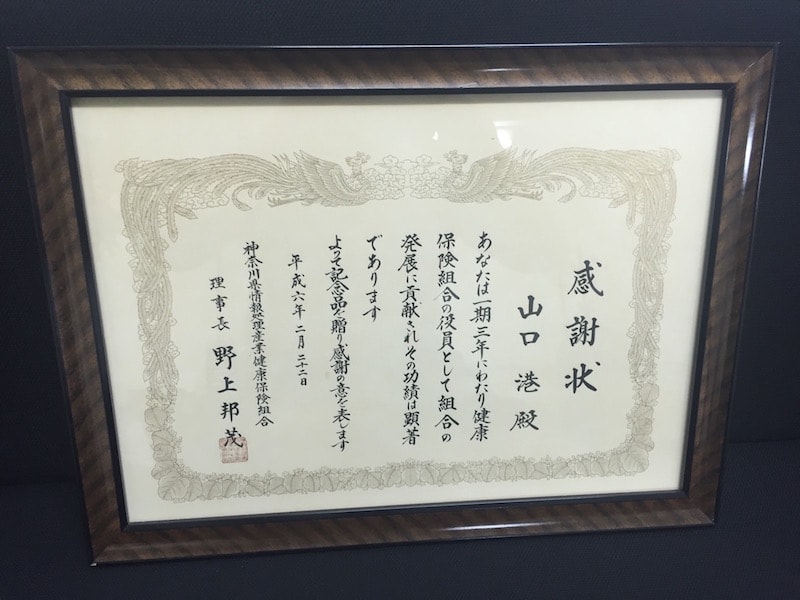 感謝状
山口港殿
あなたは一期三年にわたり健康
保険組合の役員として組合の
発展に貢献されその功績は顕著
であります
よって記念品を贈り感謝の意を表します
平成六年二月二十二日
神奈川県情報処理産業健康保険組合
理事長 野上邦茂